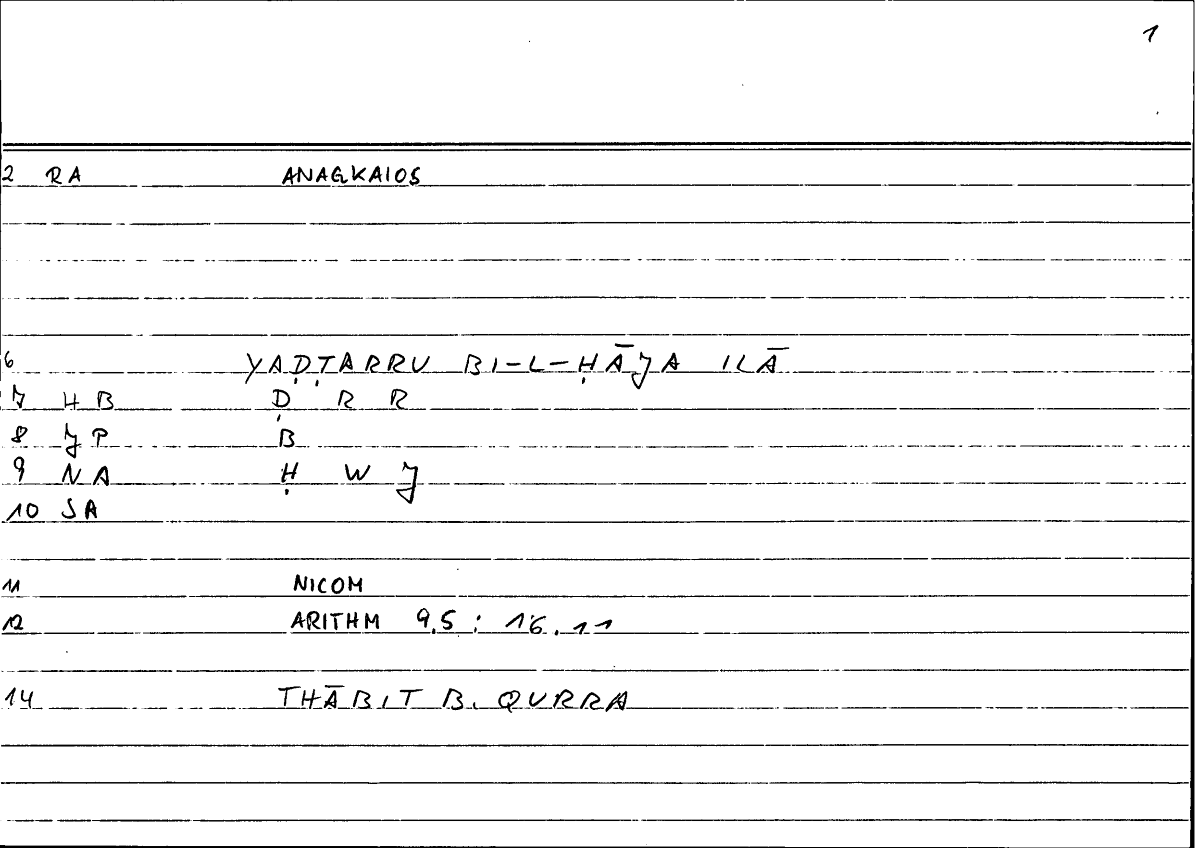 1
2 RA ANAGKAIOS
6 YAḌṬARRU BI-L-ḤĀJA ILĀ
7 HB Ḍ R R
8 JP B
9 NA Ḥ W J
10 SA
11 NICOM
12 ARITHM 9.5 : 16.11
14 THĀBIT B. QURRA